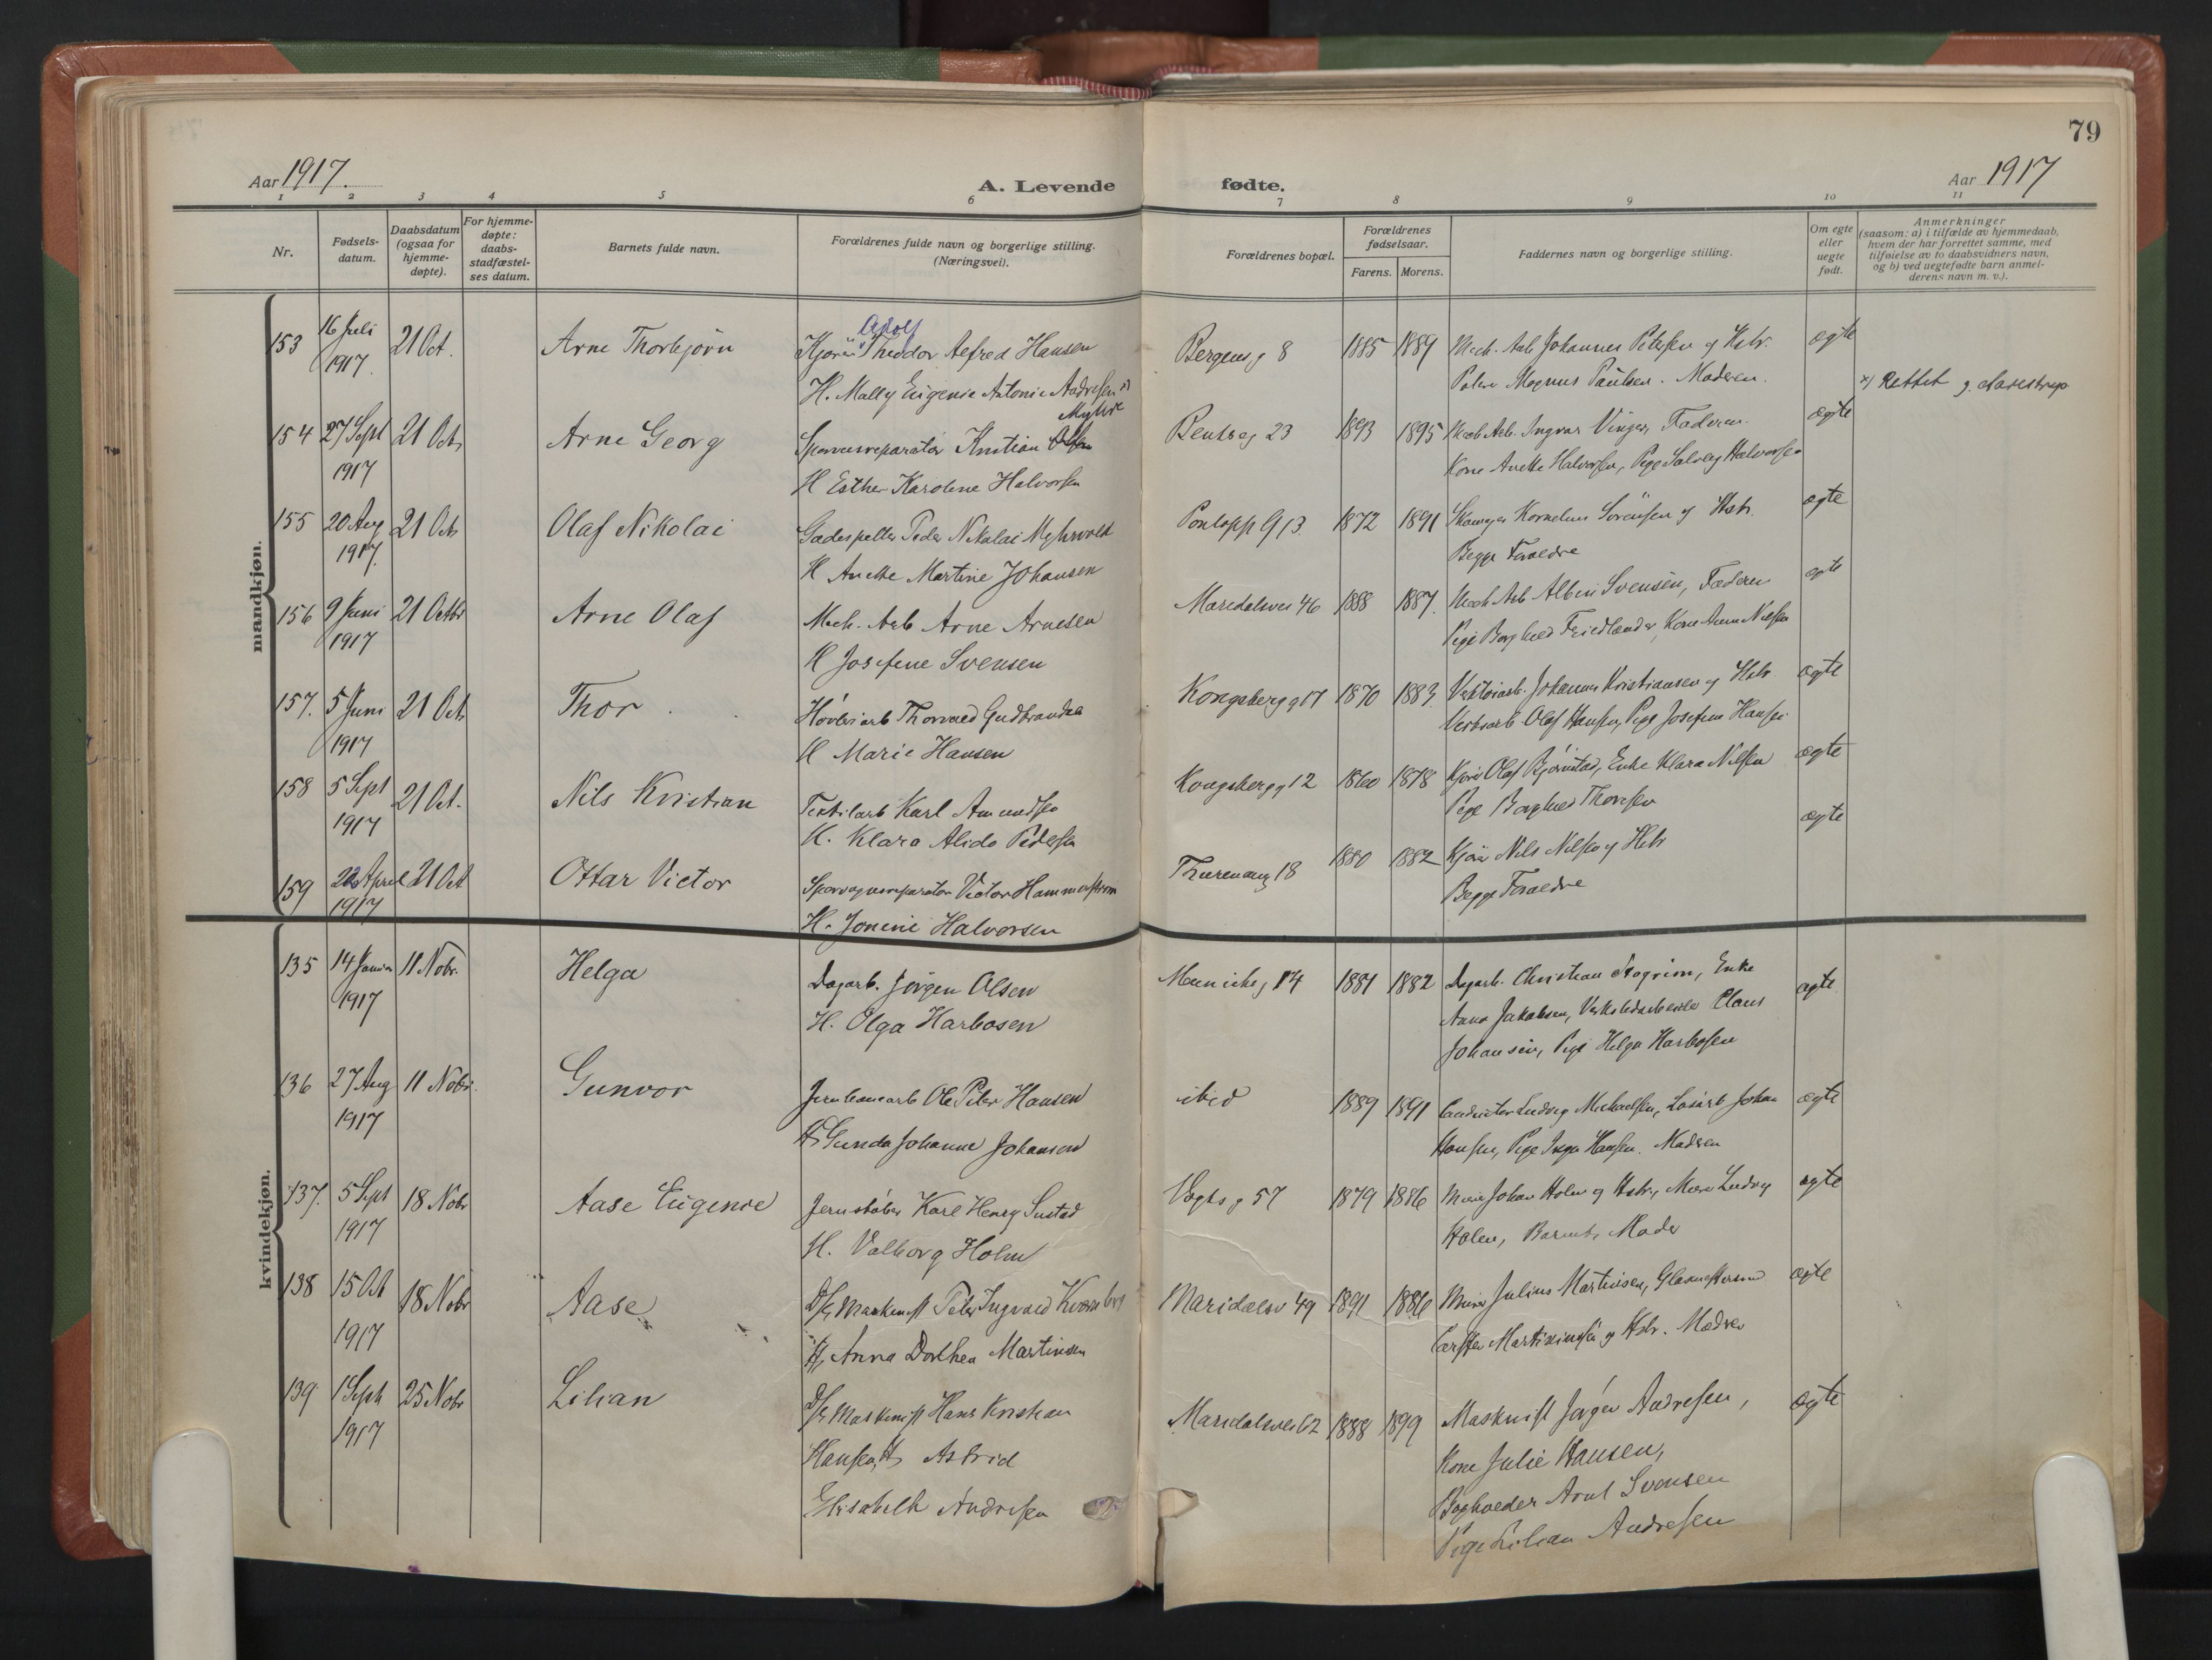 79
Aar 1917.
A. Levende
fødte.
Aar 1917
1 2 3 4 5 6 7 8 9 10 11
Nr.
Fødsels-
datum.
Daabsdatum
(ogsaa for
hjemme-
døpte).
For hjemme-
døpte:
daabs-
stadfæstel-
ses datum.
Barnets fulde navn.
Forældrenes fulde navn og borgerlige stilling.
(Næringsvei).
Forældrenes bopæl.
Forældrenes
fødselsaar.
Farens. Morens.
Faddernes navn og borgerlige stilling.
Om egte
eller
uegte
født.
Anmerkninger
(saasom: a) i tilfælde av hjemmedaab,
hvem der har forrettet samme, med
tilføielse av to daabsvidners navn,
og b) ved uegtefødte barn anmel-
derens navn m. v.).
mandkjøn.
Adolf
153 16 Juli 21 Oct. Arne Thorbjørn Theodor Alfred Hansen Bergensg 8 1885 1889 Mek. Arb Johannes Petersen og Hstr. ægte
1917. H. Mally Eugenie Antonie Andresen x) Magnus Paulsen. Moderen. x) Rettet
Myhre
154 27 Sept 21 Oct. Arne Georg Kristian Olsen Bentseg 23 1893 1895 Arb. Ingvar Vinger, Faderen. ægte
1917 H Esther Karoline Halvorsen Kone Anette Halvorsen, Pige Solveig Halvorsen
155 20 Aug 21 Oct Olaf Nikolai Peder Nikolai Myhrvold Pontoppg 13 1872 1891 Kornelius Sörensen og Hstr. ægte
1917. H Anette Martine Johansen Begge Forældre
156 9 Juni 21 Octbr Arne Olaf Mek. Arb Arne Arnesen Maridalsvei 46 1888 1887. Mek Arb Albin Svensen, Faderen ægte
1917 H Josefine Svensen Pige Borghild Friedlander, Kone Anna Nilsen
157. 5 Juni 21 Oct. Thor Høvleriarb Thorvald Gudbrandsen Kongsbergg 17 1870 1883. Johannes Kristiansen og Hstr ægte
1917 H Marie Hansen Verksarb Olaf Hansen, Pige Josefine Hansen
158 5 Sept 21 Oct. Nils Kristian Textilarb Karl Amundsen Kongsbergg 12 1860 1878 Kjører Olaf Bjørnstad, Enke Klara Nilsen ægte
1917 H. Klara Alida Pedersen Pige Borghild Thoresen
159 22 April 21 Oct Ottar Victor Sporvognsreparatør Victor Hammerstrøm 18 1880 1882 Kjører Nils Nilsen og Hstr ægte
1917 H. Jonine Halvorsen Begge Forældre
kvindekjøn.
135 14 Januar 11 Nobr. Helga Dagarb. Jörgen Olsen 14 1881 1882 Dagarb. Christian Enke ægte
1917 H. Olga Harbosen Anna Jakobsen, Verkstedarbeider Claus
Johansen, Pige Helga Harbosen
136 27 Aug 11 Nobr. Gunvor Jernbanearb Ole Peter Hansen ibid 1889 1891 Conductør Ludvig Michaelsen, Johan ægte
1917 H. Gunda Johanne Johansen Hansen, Pige Inga Hansen. Modren
137. 5 Sept 18 Nobr Aase Eugenie Jernstøber Karl Henry Sustad Vogtsg 57 1879 1886 Murer Johan Holm og Hstr, Murer Ludvig ægte
1917 H. Valborg Holm Holm, Barnets Moder
138 15 Oct 18 Nobr Aase D/s Maskinist Peter Ingvald Maridalsv 49 1891 1886 Murer Julius Martinsen, Glasmester ægte
1917 H, Anna Dorthea Martinsen Martiniusen og Hstr. Modren
139 1 Sept 25 Nobr Lilian D/s Maskinist Hans Kristian Maridalsvei 62 1888 1899 Maskinist Jørgen Andresen, ægte
1917 Hansen, H Astrid Kone Julie Hansen,
Elisabeth Andresen Bogholder Arnt Svensen
Pige Lilian Andresen